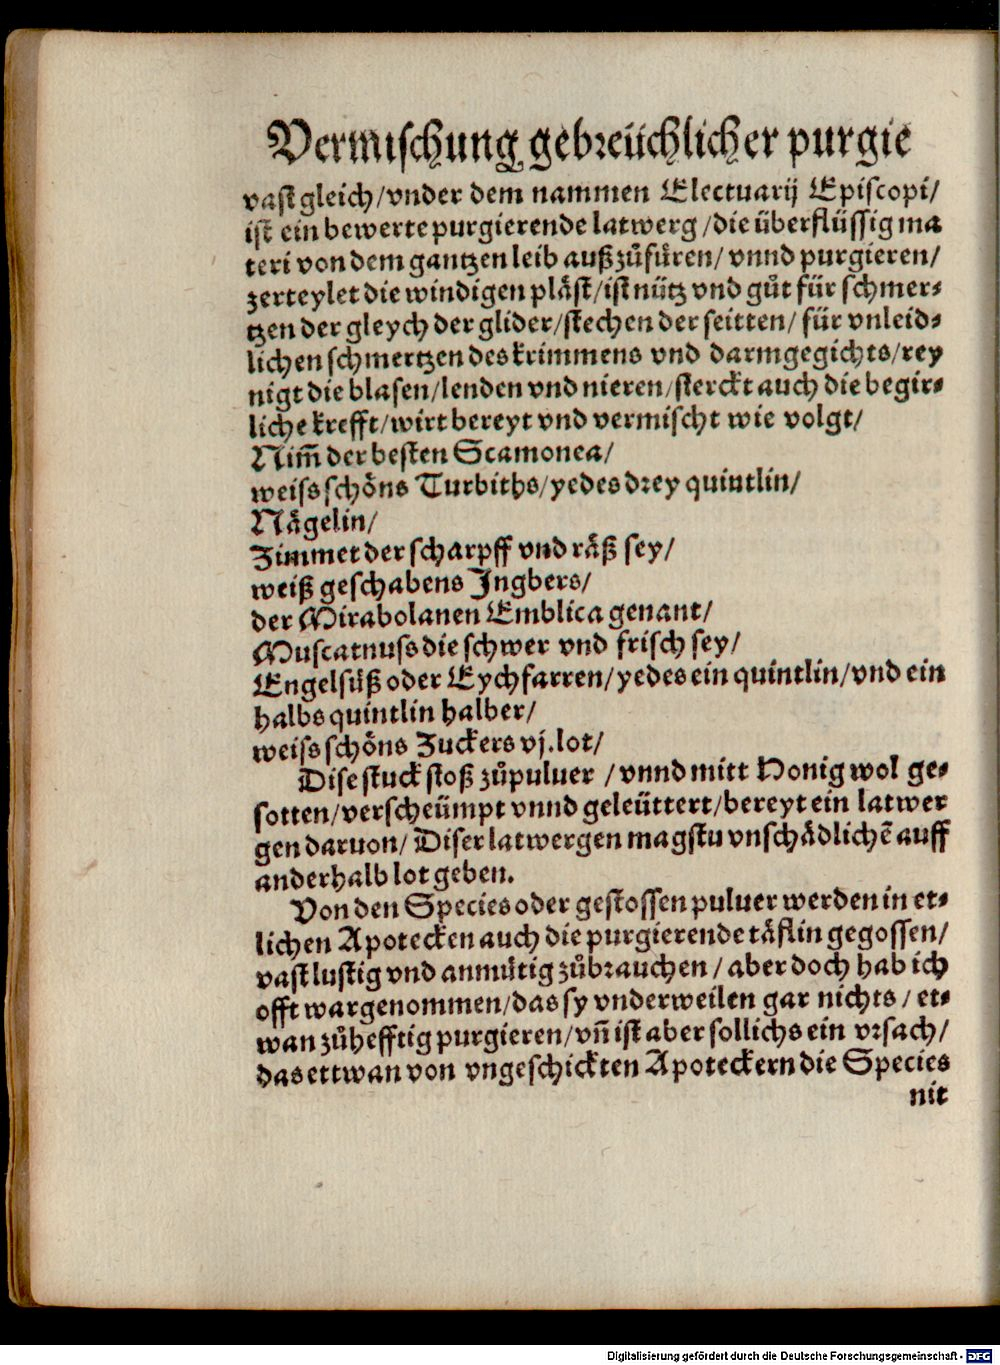 Vermischung gebreüchlicher purgie
vast gleich/vnder dem nammen Electuarij Episcopi/
ist ein bewerte purgierende latwerg/die überflüssig ma
teri von dem gantzen leib auß zůfüren/ vnnd purgieren/
zerteylet die windigen pläst/ist nütz vnd gůt für schmer⸗
tzen der gleych der glider/stechen der seitten/ für vnleid⸗
lichen schmertzen des krimmens vnd darmgegichts/rey
nigt die blasen/lenden vnd nieren/sterckt auch die begir⸗
liche krefft/wirt bereyt vnd vermischt wie volgt/
Nim̃ der besten Scamonea/
weiss schöns Turbiths/yedes drey quintlin/
Nägelin/
Zimmet der scharpff vnd räß sey/
weiß geschabens Jngbers/
der Mirabolanen Emblica genant/
Muscatnuss die schwer vnd frisch sey/
Engelsüß oder Eychfarren/yedes ein quintlin/vnd ein
halbs quintlin halber/
weiss schöns Zuckers vj.lot/
Dise stuck stoß zůpuluer /vnnd mitt Honig wol ge⸗
sotten/verscheümpt vnnd geleüttert/bereyt ein latwer
gen daruon/ Diser latwergen magstu vnschädlichẽ auff
anderhalb lot geben.
Von den Species oder gestossen puluer werden in et⸗
lichen Apotecken auch die purgierende täflin gegossen/
vast lustig vnd anmütig zůbrauchen/ aber doch hab ich
offt wargenommen/das sy vnderweilen gar nichts/ et⸗
wan zůhefftig purgieren/vñ ist aber sollichs ein vrsach/
das ettwan von vngeschickten Apoteckern die Species
nit
Digitalisierung gefördert durch die Deutsche Forschungsgemeinschaft - DFG